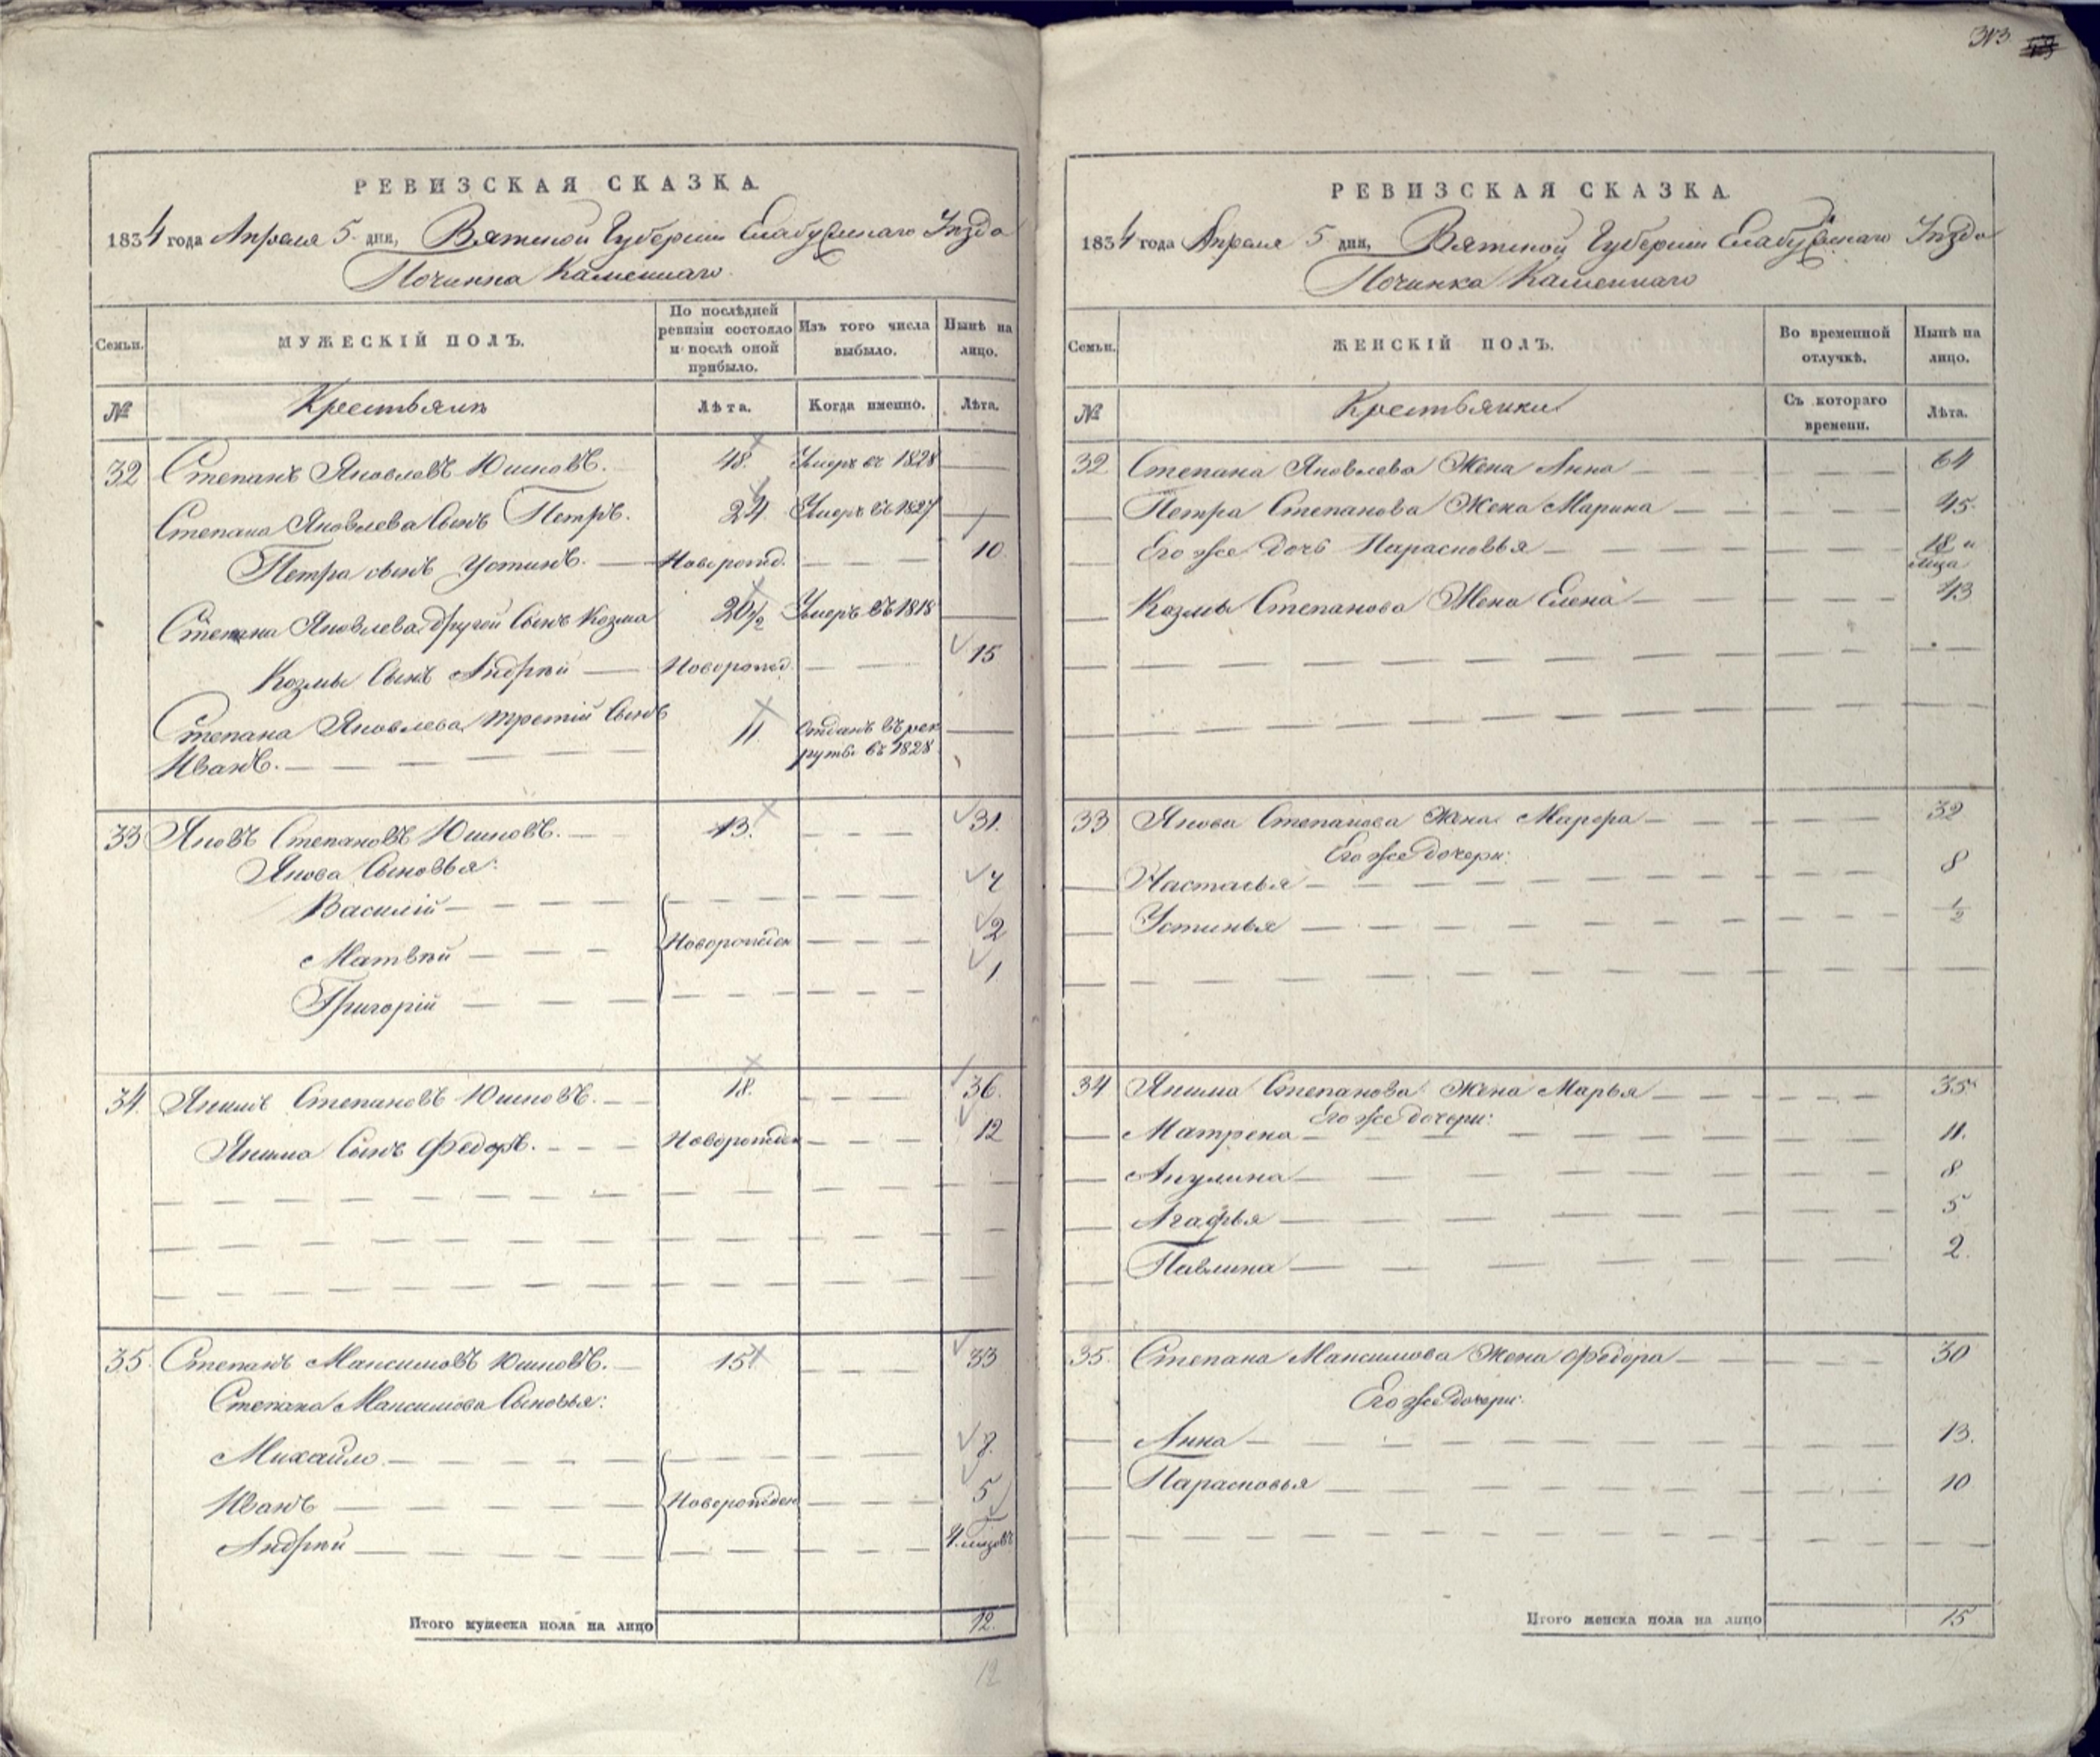 313
РЕВИЗСКАЯ СКАЗКА
1834 года Апреля 5 дня, Вятской Губернiи Елабужскаго Уѣзда
Починка Каменнаго.
Семьи.
МУЖЕСКIЙ ПОЛЪ.
По послѣдней ревизiи состояло и послѣ оной прибыло.
Изъ того числа выбыло.
Нынѣ на лицо.
№
Крестьянъ
Лѣта.
Когда именно.
Лѣта.
32 Степанъ Яковлевъ Юшковъ. 48. Умеръ въ 1828
Степана Яковлева Сынъ Петръ. 24. Умеръ въ 1827
Петра сынъ Устинъ. Новорожд. 10.
Степана Яковлева другой Сынъ Козма 20 1/2 Умеръ въ 1818
Козмы Сынъ Андрѣй Новорожд. 15
Степана Яковлева третiй Сынъ 11. отданъ въ рек
Иванъ. руты въ 1828
33 Яковъ Степановъ Юшковъ. 13. 31.
Якова Сыновья:
Василiй 4
Матвѣй Новорожден 2
Григорiй 1
34. Якимъ Степановъ Юшковъ. 18. 36.
Якима Сынъ Федоръ. Новорожден 12
35. Степанъ Максимовъ Юшковъ. 15 33
Степана Максимова Сыновья:
Михайло 8.
Иванъ Новорожден 5
Андрѣй
Итого мужеска пола на лицо 12.
12
РЕВИЗСКАЯ СКАЗКА
1834 года Апреля 5 дня, Вятской Губернiи Елабужскаго Уѣзда
Починка Каменнаго
Семьи.
ЖЕНСКIЙ ПОЛЪ.
Во временной отлучкѣ.
Нынѣ на лицо.
№
Крестьянки
Съ котораго времени.
Лѣта.
32 Степана Яковлева Жена Анна 64
Петра Степанова Жена Марина 45.
Его же дочь Парасковья 18 и
Козмы Степанова Жена Елена 43
33 Якова Степанова Жена Марфа 32
Его же дочери:
Настасья 8
Устинья 1/2
34 Якима Степанова Жена Марья 35
Его же дочери:
Матрена 11.
Акулина 8
Агафья 5
Павлина 2.
35. Степана Максимова Жена Федора 30
Его же дочери:
Анна 13.
Парасковья 10
Итого женска пола на лицо 15